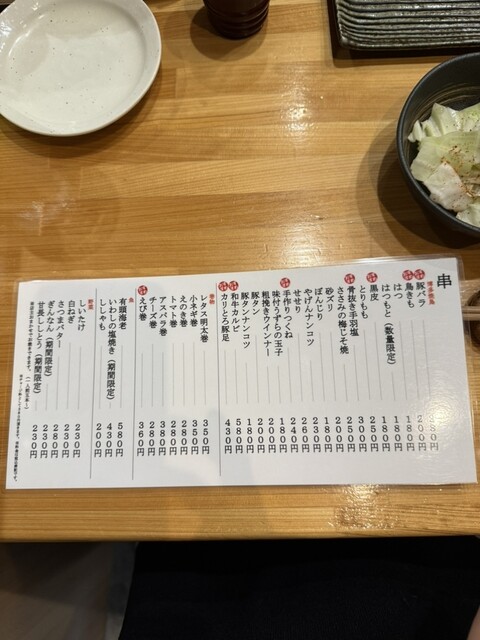 串
博多串焼
豚バラ
鳥きも 200円
はつ 180円
はつもと(数量限定) 180円
黒皮 180円
とりもも
骨抜き手羽塩
ささみの梅じそ焼
砂ズリ 180円
ぼんじり 230円
やげんナンコツ 260円
せせり 240円
手作りつくね 180円
味付うずらの玉子 200円
粗挽きウインナー 200円
豚タン
豚タンナンコツ 180円
和牛カルビ 580円
カリとろ豚足 430円
巻物
レタス明太巻 350円
小ネギ巻 350円
えのき巻 280円
トマト巻 280円
アスパラ巻 380円
チーズ巻 280円
えび巻 360円
魚
有頭海老 580円
いわしの塩焼き(期間限定) 430円
ししゃも 200円
野菜
しいたけ 230円
白ねぎ 230円
さつまバター 280円
ぎんなん(期間限定) 230円
甘長ししとう(期間限定) 230円